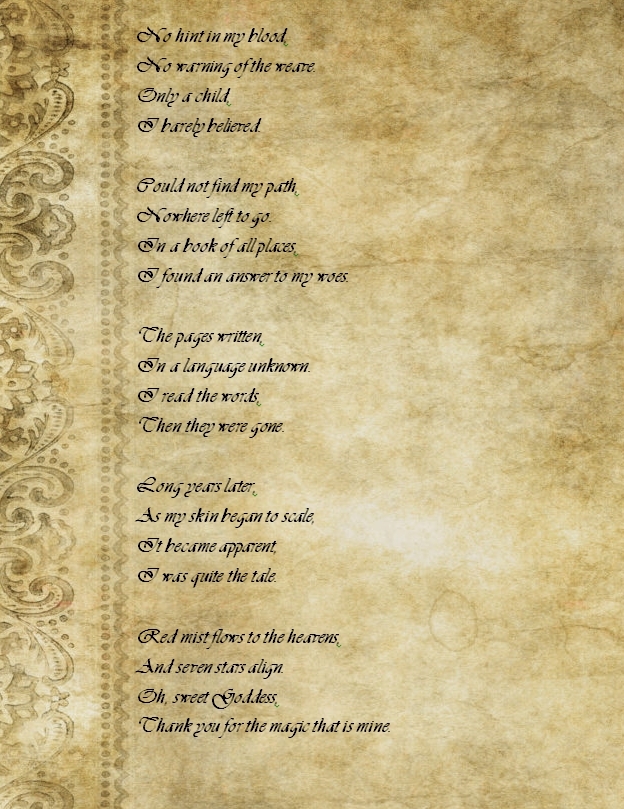 No hint in my blood,
No warning of the weave.
Only a child,
I barely believed.
Could not find my path,
Nowhere left to go.
In a book of all places,
I found an answer to my woes.
The pages written,
In a language unknown.
I read the words,
Then they were gone.
Long years later,
As my skin began to scale,
It became apparent,
I was quite the tale.
Red mist flows to the heavens,
And seven stars align.
Oh, sweet Goddess,
Thank you for the magic that is mine.